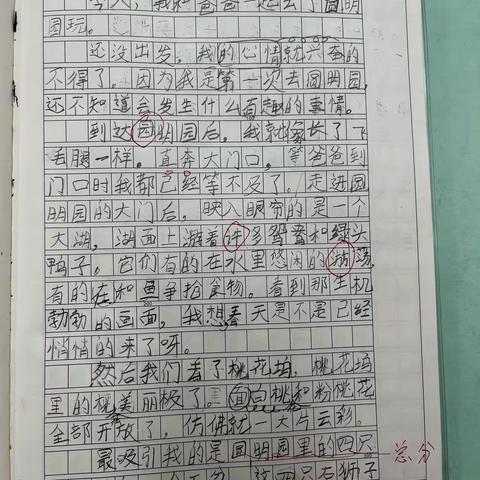 今天，我和爸爸一起去了圆明
园玩。
还没出发，我的心情就兴奋的
不得了。因为我是第一次去圆明园，
还不知道会发生什么有趣的事情。
到达园明园后，我就像长了飞
毛腿一样，直奔大门口，等爸爸到
门口时我都已经等不及了。走进圆
明园的大门后，映入眼帘的是一个
大湖，湖面上游着许多鸳鸯和绿头
鸭子。它们有的在水里悠闲的游荡，
有的在和鱼争抢食物。看到那生机
勃勃的画面，我想春天是不是已经
悄悄的来了呀。
然后我们去了桃花坞，桃花坞
里的桃美丽极了。白桃和粉桃花
全部开放了，仿佛就一大片云彩。
最吸引我的是圆明园里的四只
总分
这四只石狮子